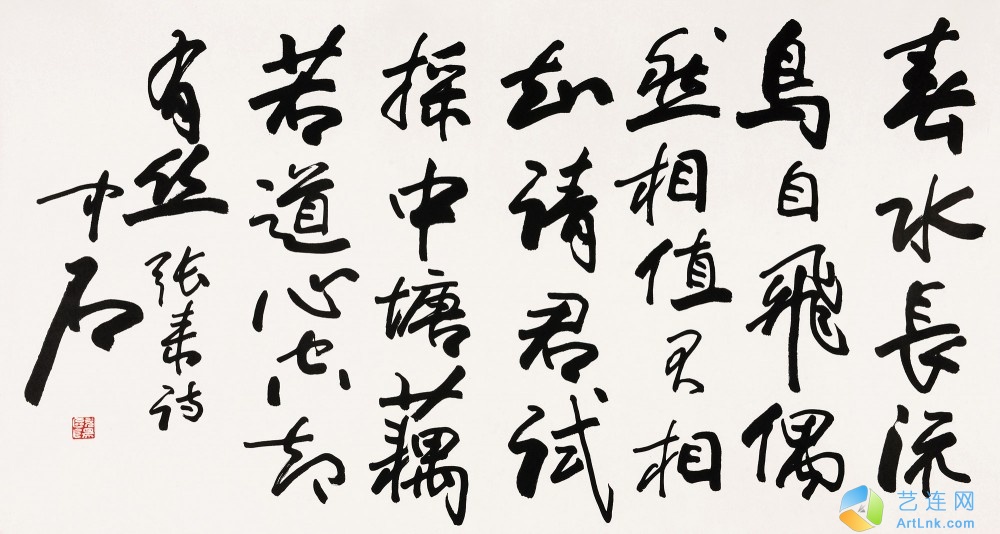 春水長流
鳥自飛偶
然相值不相
知請君試
採中塘藕
若道心空却
有丝
张耒诗
中石
艺连网
ArtLnk.com